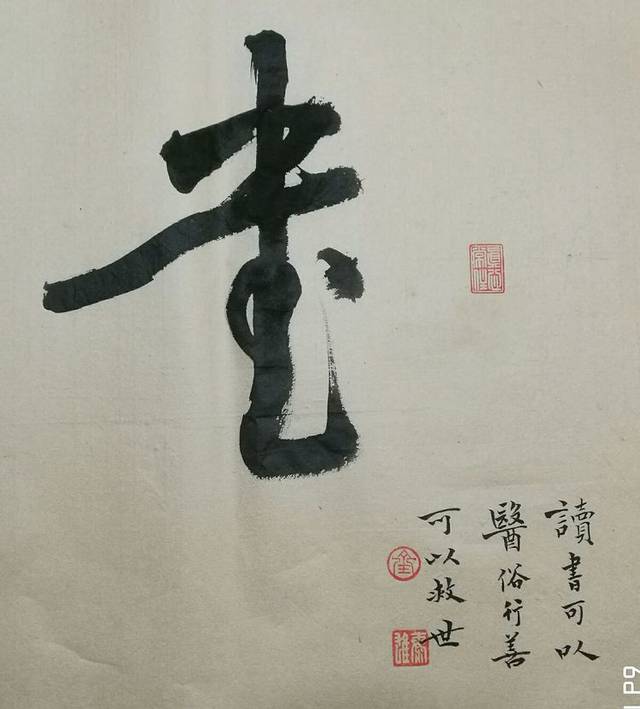 書
讀書可以
醫俗行善
可以救世
P9